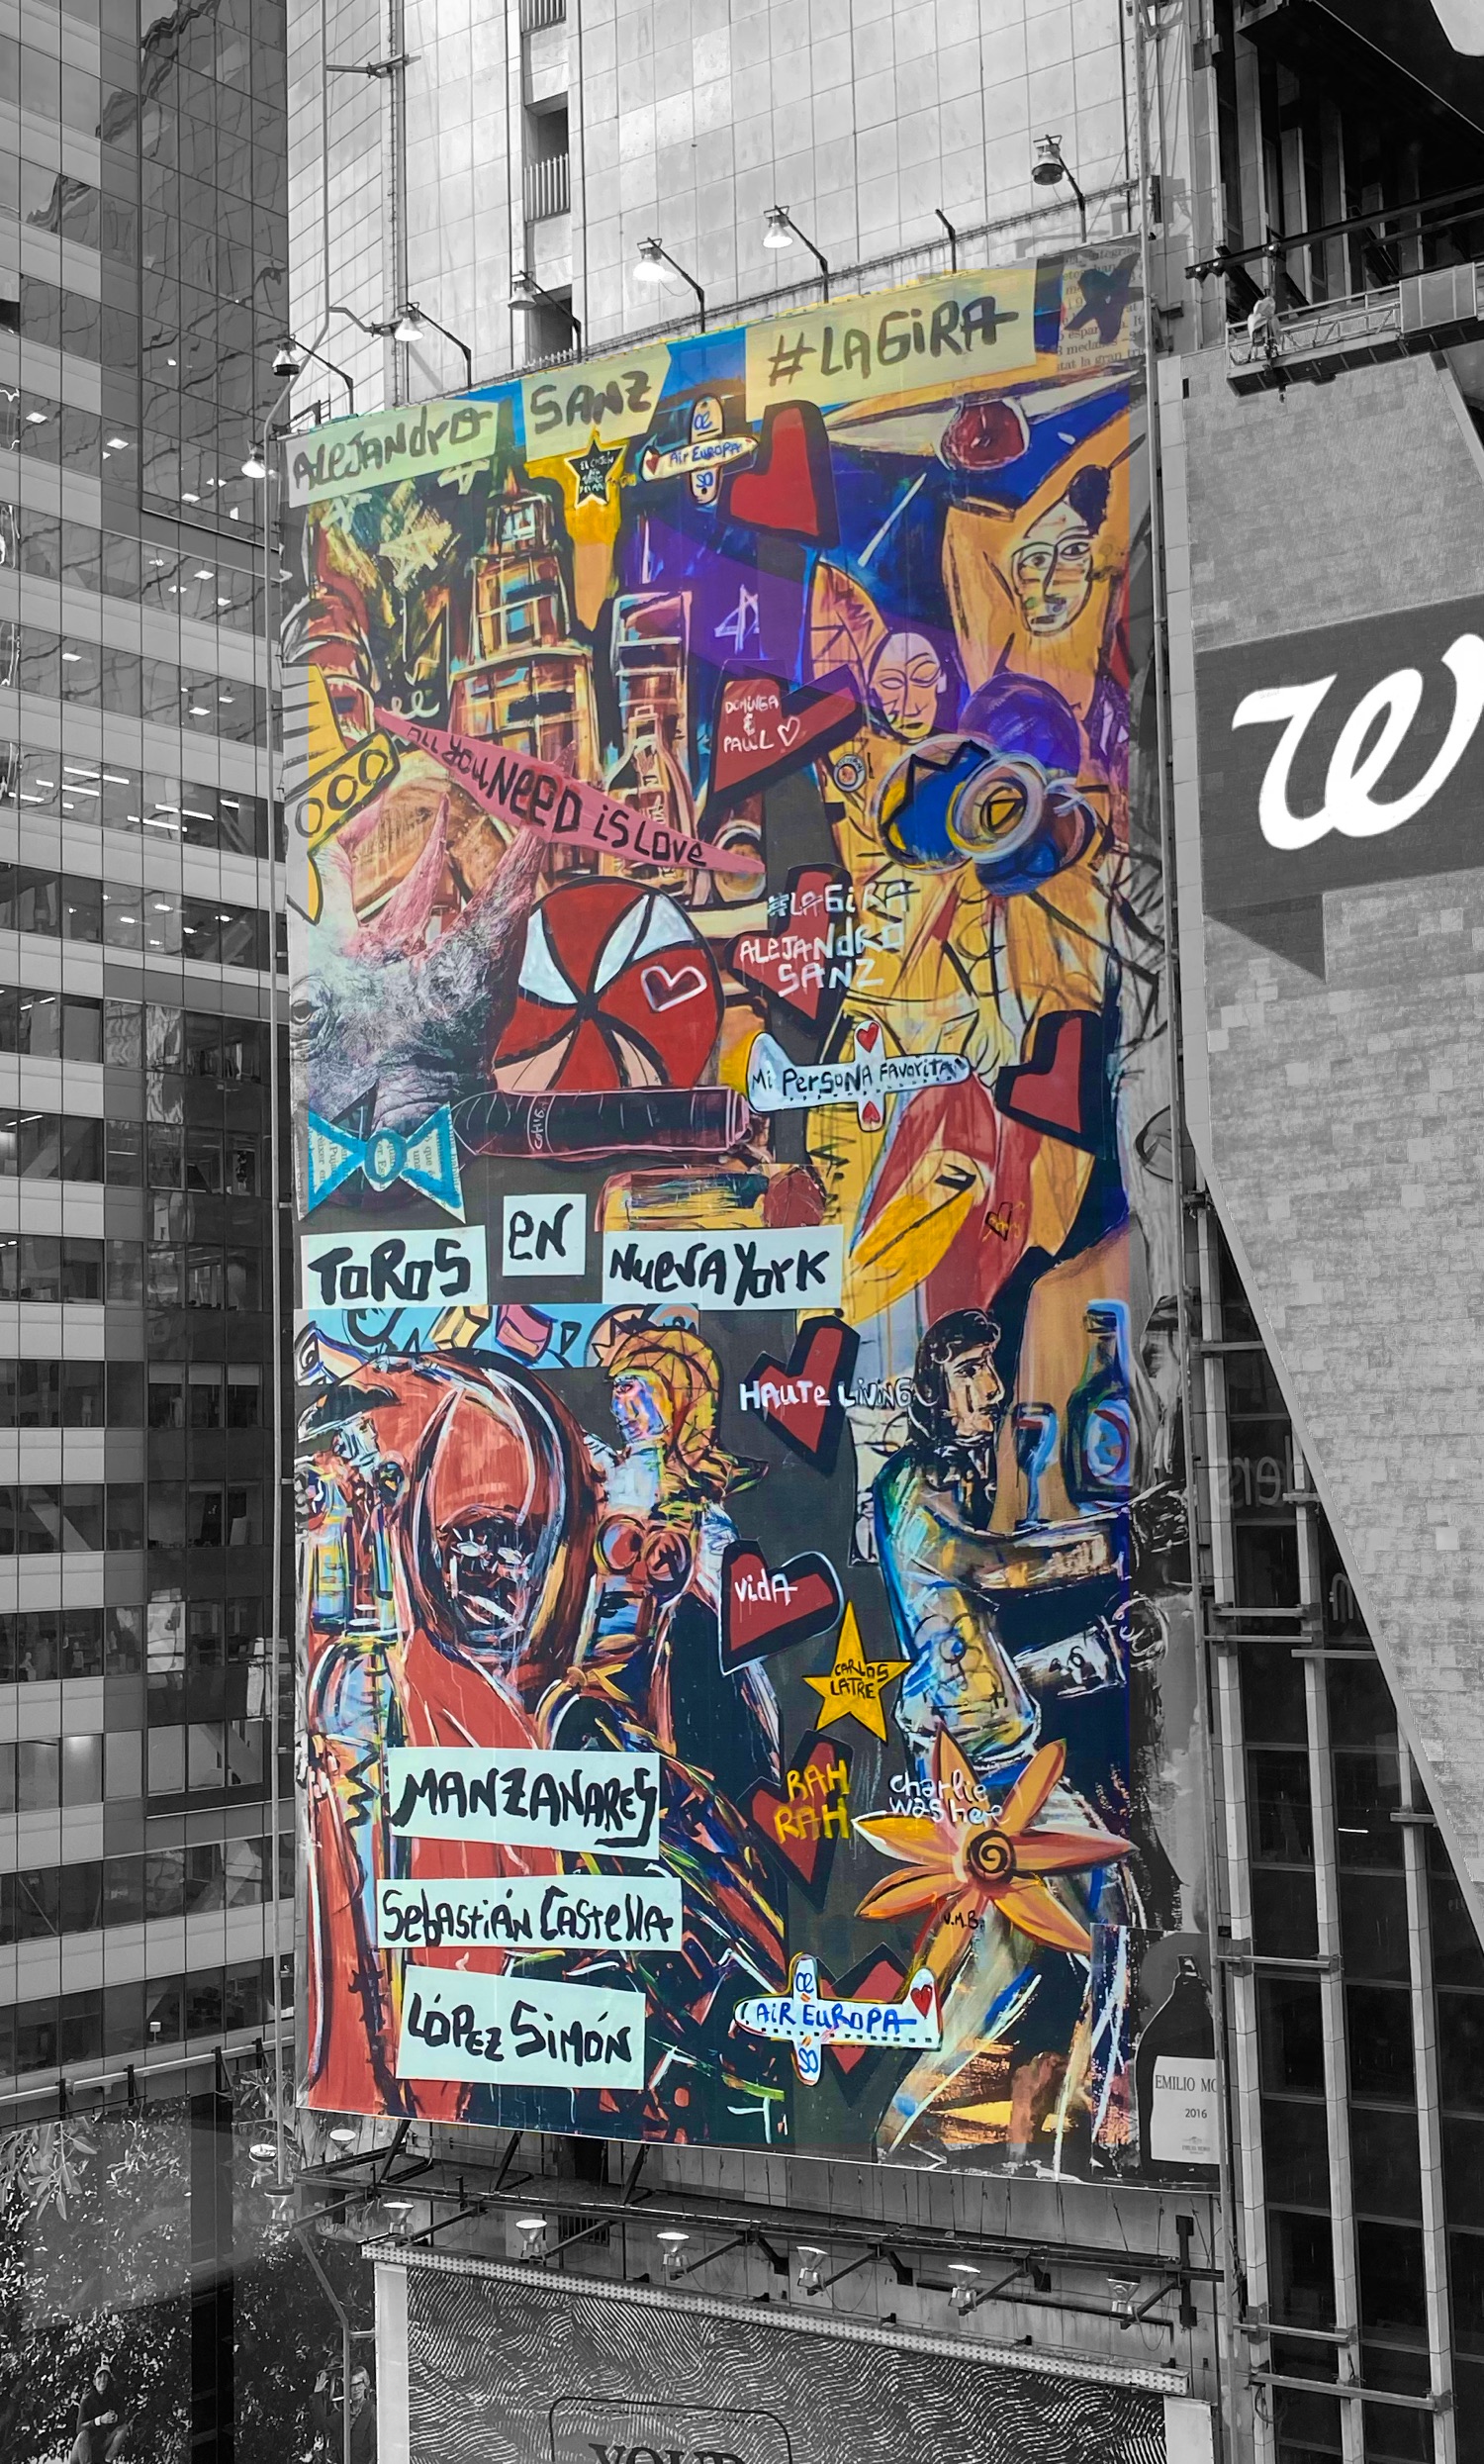 ALEJANdrO SANZ #LAGiRA
Air EUROPA
DOMiNGA
&
PAUL
ALL YOU NEED iS LOVE
#LAGiRA
ALEJANdRO
SANZ
Mi PerSONA FAVORiTA
TOROS EN NUEVA YOrK
HAUTE LiViNG
VidA
CARLOS
LATRE
RAH
RAH
charlie
was here
MANZANARES
SebAStiÁN CAStellA
LÓPEZ SiMÓN
AiR EUROPA
EMILIO MO
2016
W
YOUR